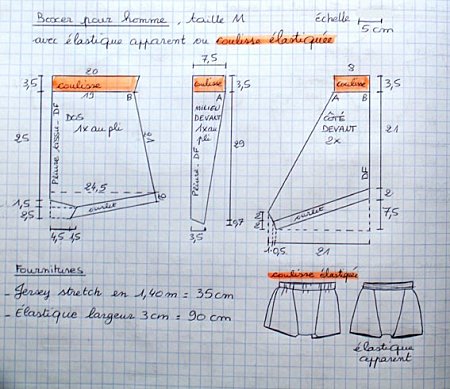 Boxer pour homme, taille M
échelle
5 cm
avec élastique apparent ou coulisse élastiquée
20
7,5
8
3,5
coulisse
coulisse
3,5
coulisse
3,5
19
B
A
A
B
25
Pliure tissu - DF
DOS
1x au pli
Pliure - DF
MILIEU
DEVANT
1x au
pli
29
CÔTÉ
DEVANT
2x
21
DF
24,5
B
1,5
2,5
ourlet
4,5
1,5
3,5
0,7
2
2
ourlet
2
7,5
1
0,5
21
Fournitures
- Jersey stretch en 1,40m = 35cm
- Élastique largeur 3cm = 90cm
coulisse élastiquée
élastique
apparent